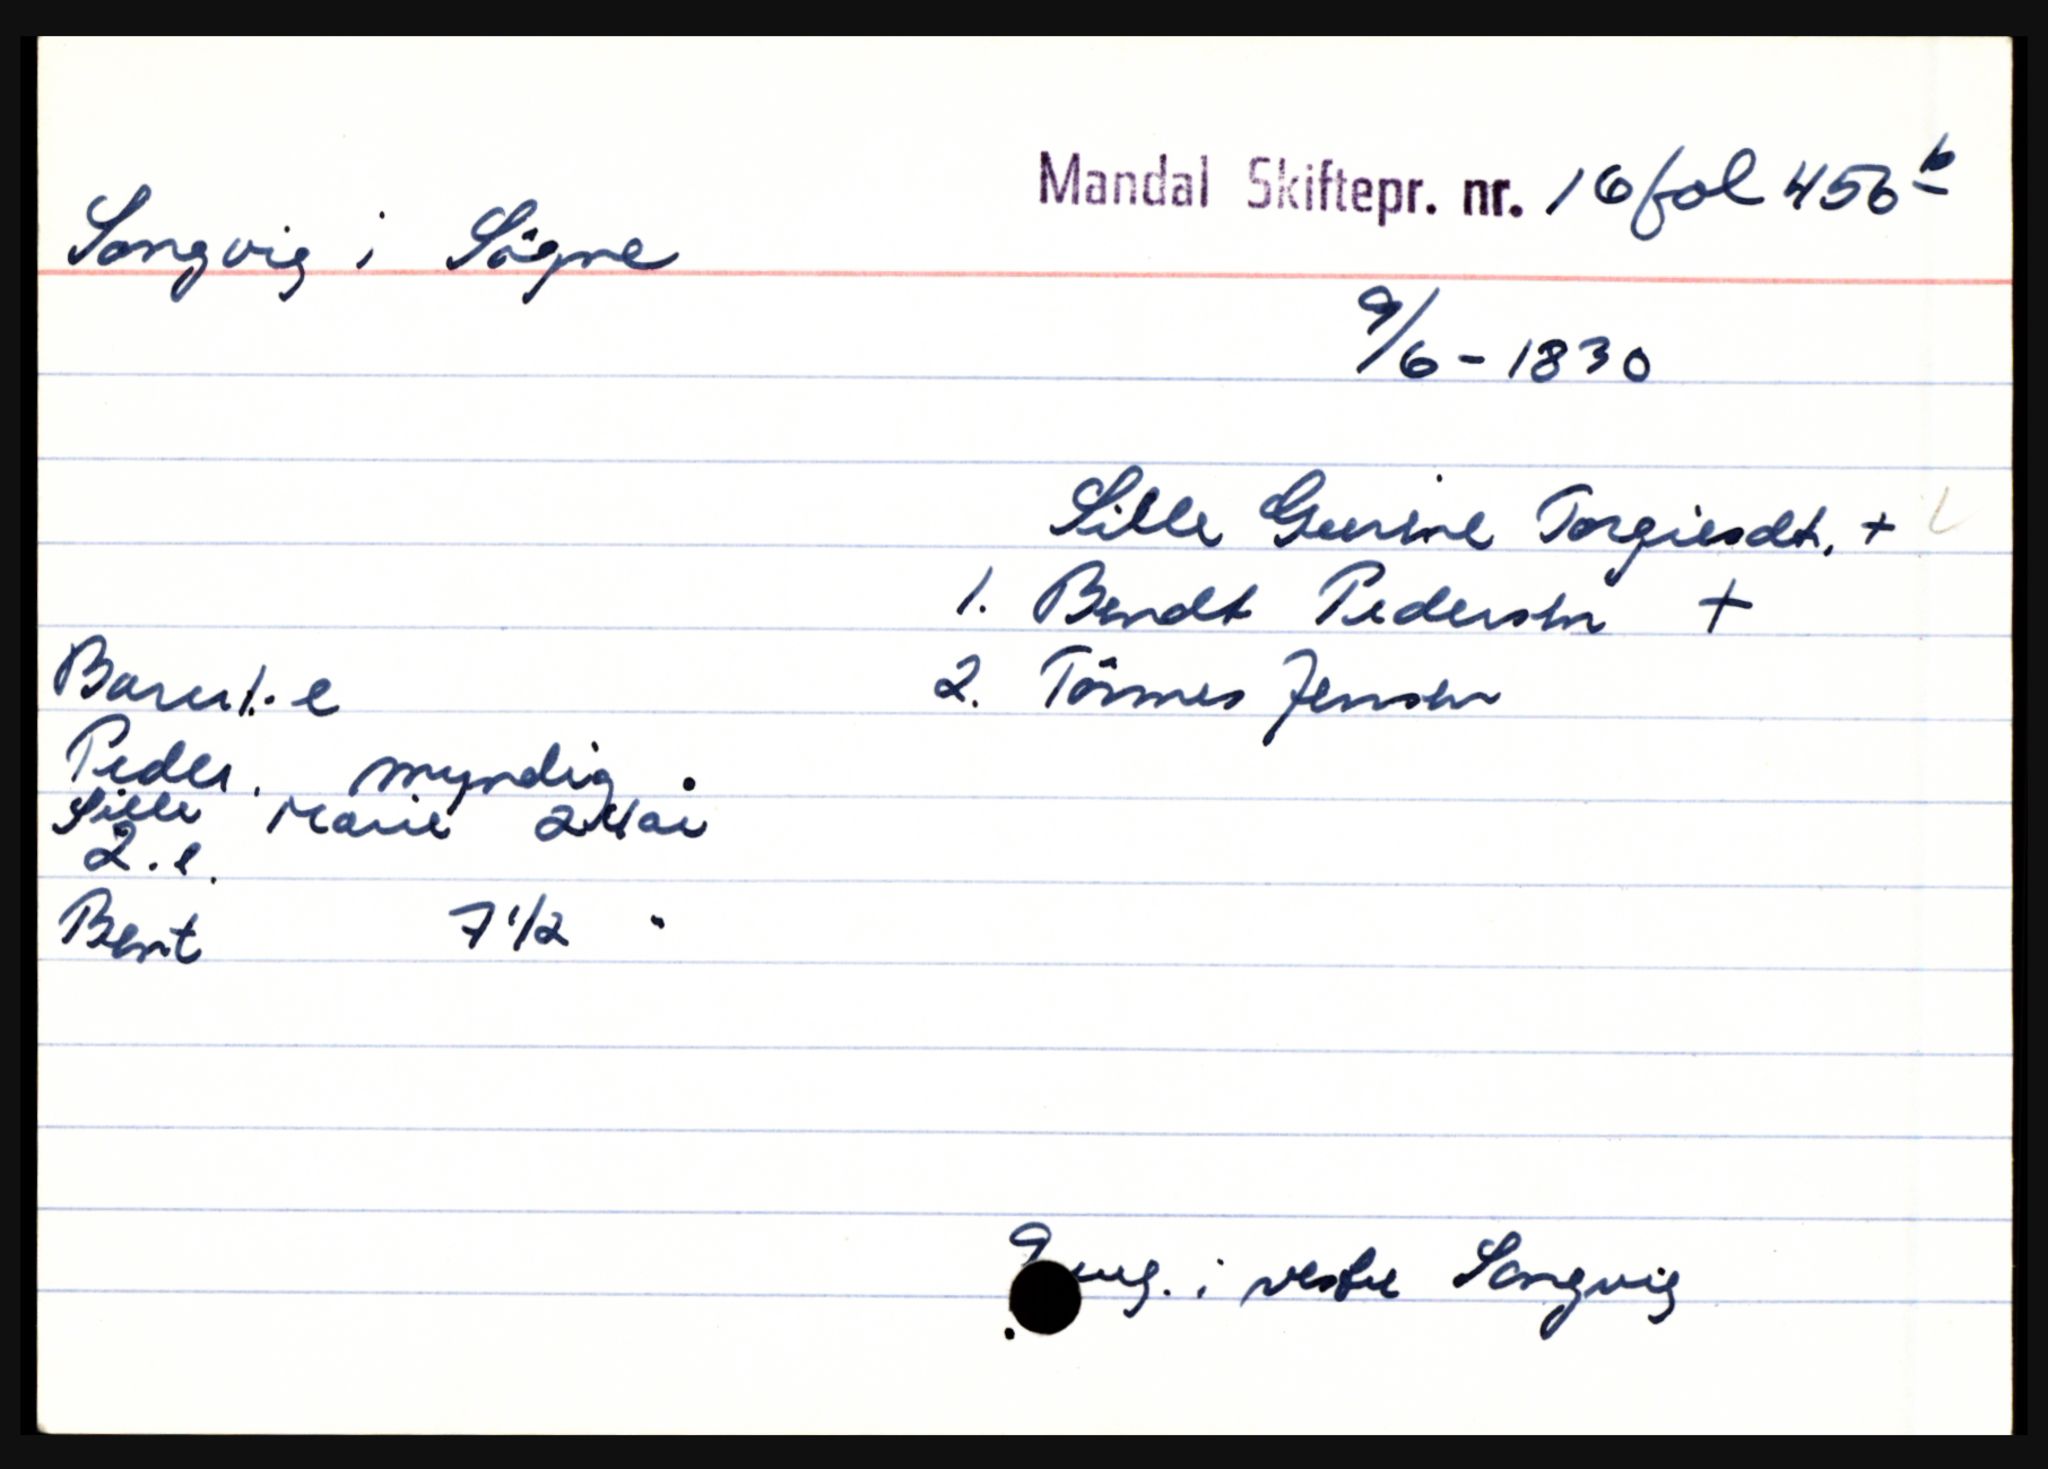 Mandal Skiftepr. nr. 16 fol 456 b
Songvig i Søgne
9/6 - 1830
Sille Gurine Torgiesdt. +
1. Bendt Pedersen +
2. Tönnes Jensen
Barn 1. e
Peder, myndig
Sille Marie 24 år
2. e.
Bent 7 1/2 "
i vestre Songvig